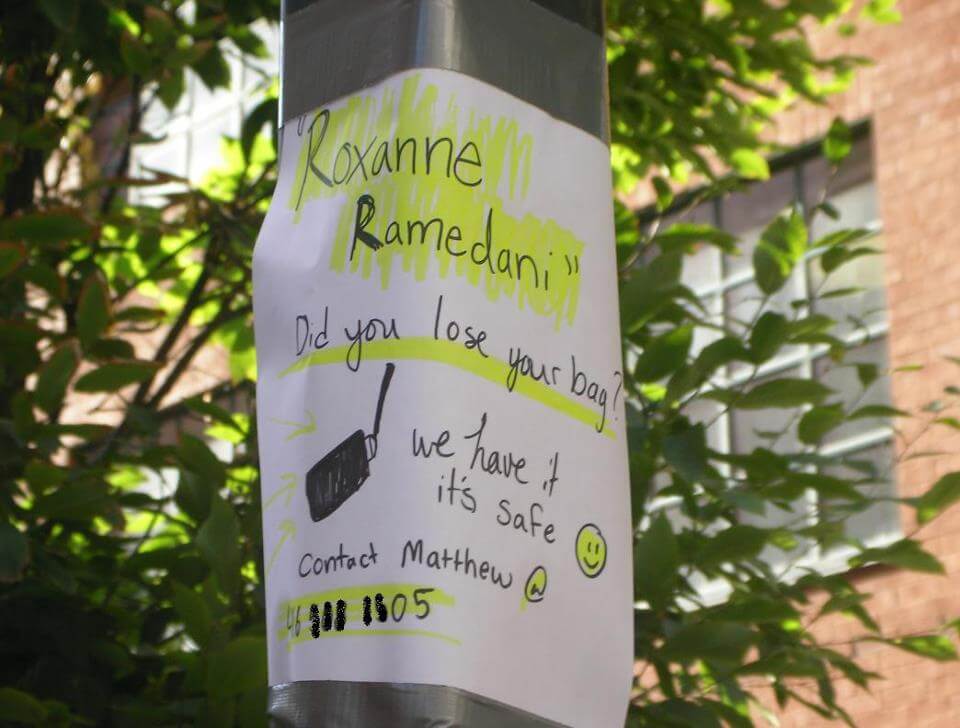 "Roxanne
Ramedani"
Did you lose your bag?
we have it
it's safe
Contact Matthew @
05